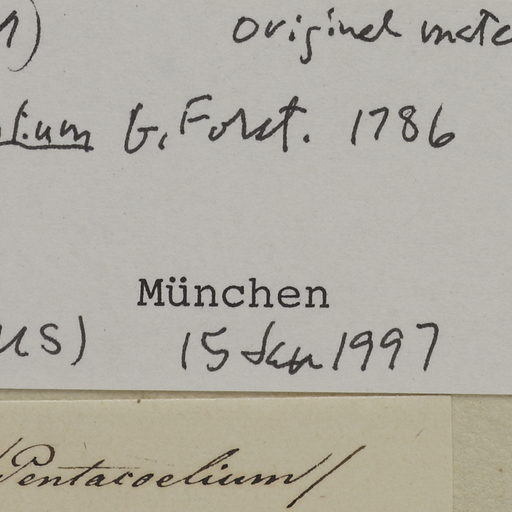 Original
G. Forst. 1786
München
US) 15 Jan 1997
/Pentacoelium/